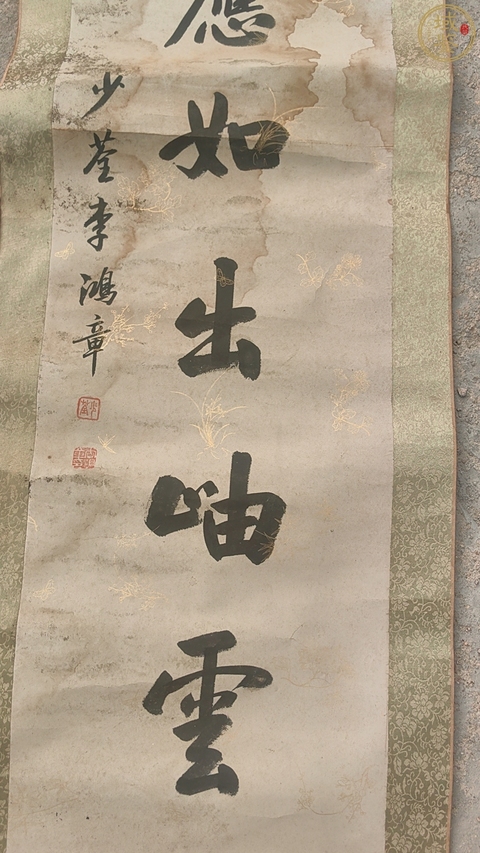 應如出岫雲
少荃李鴻章